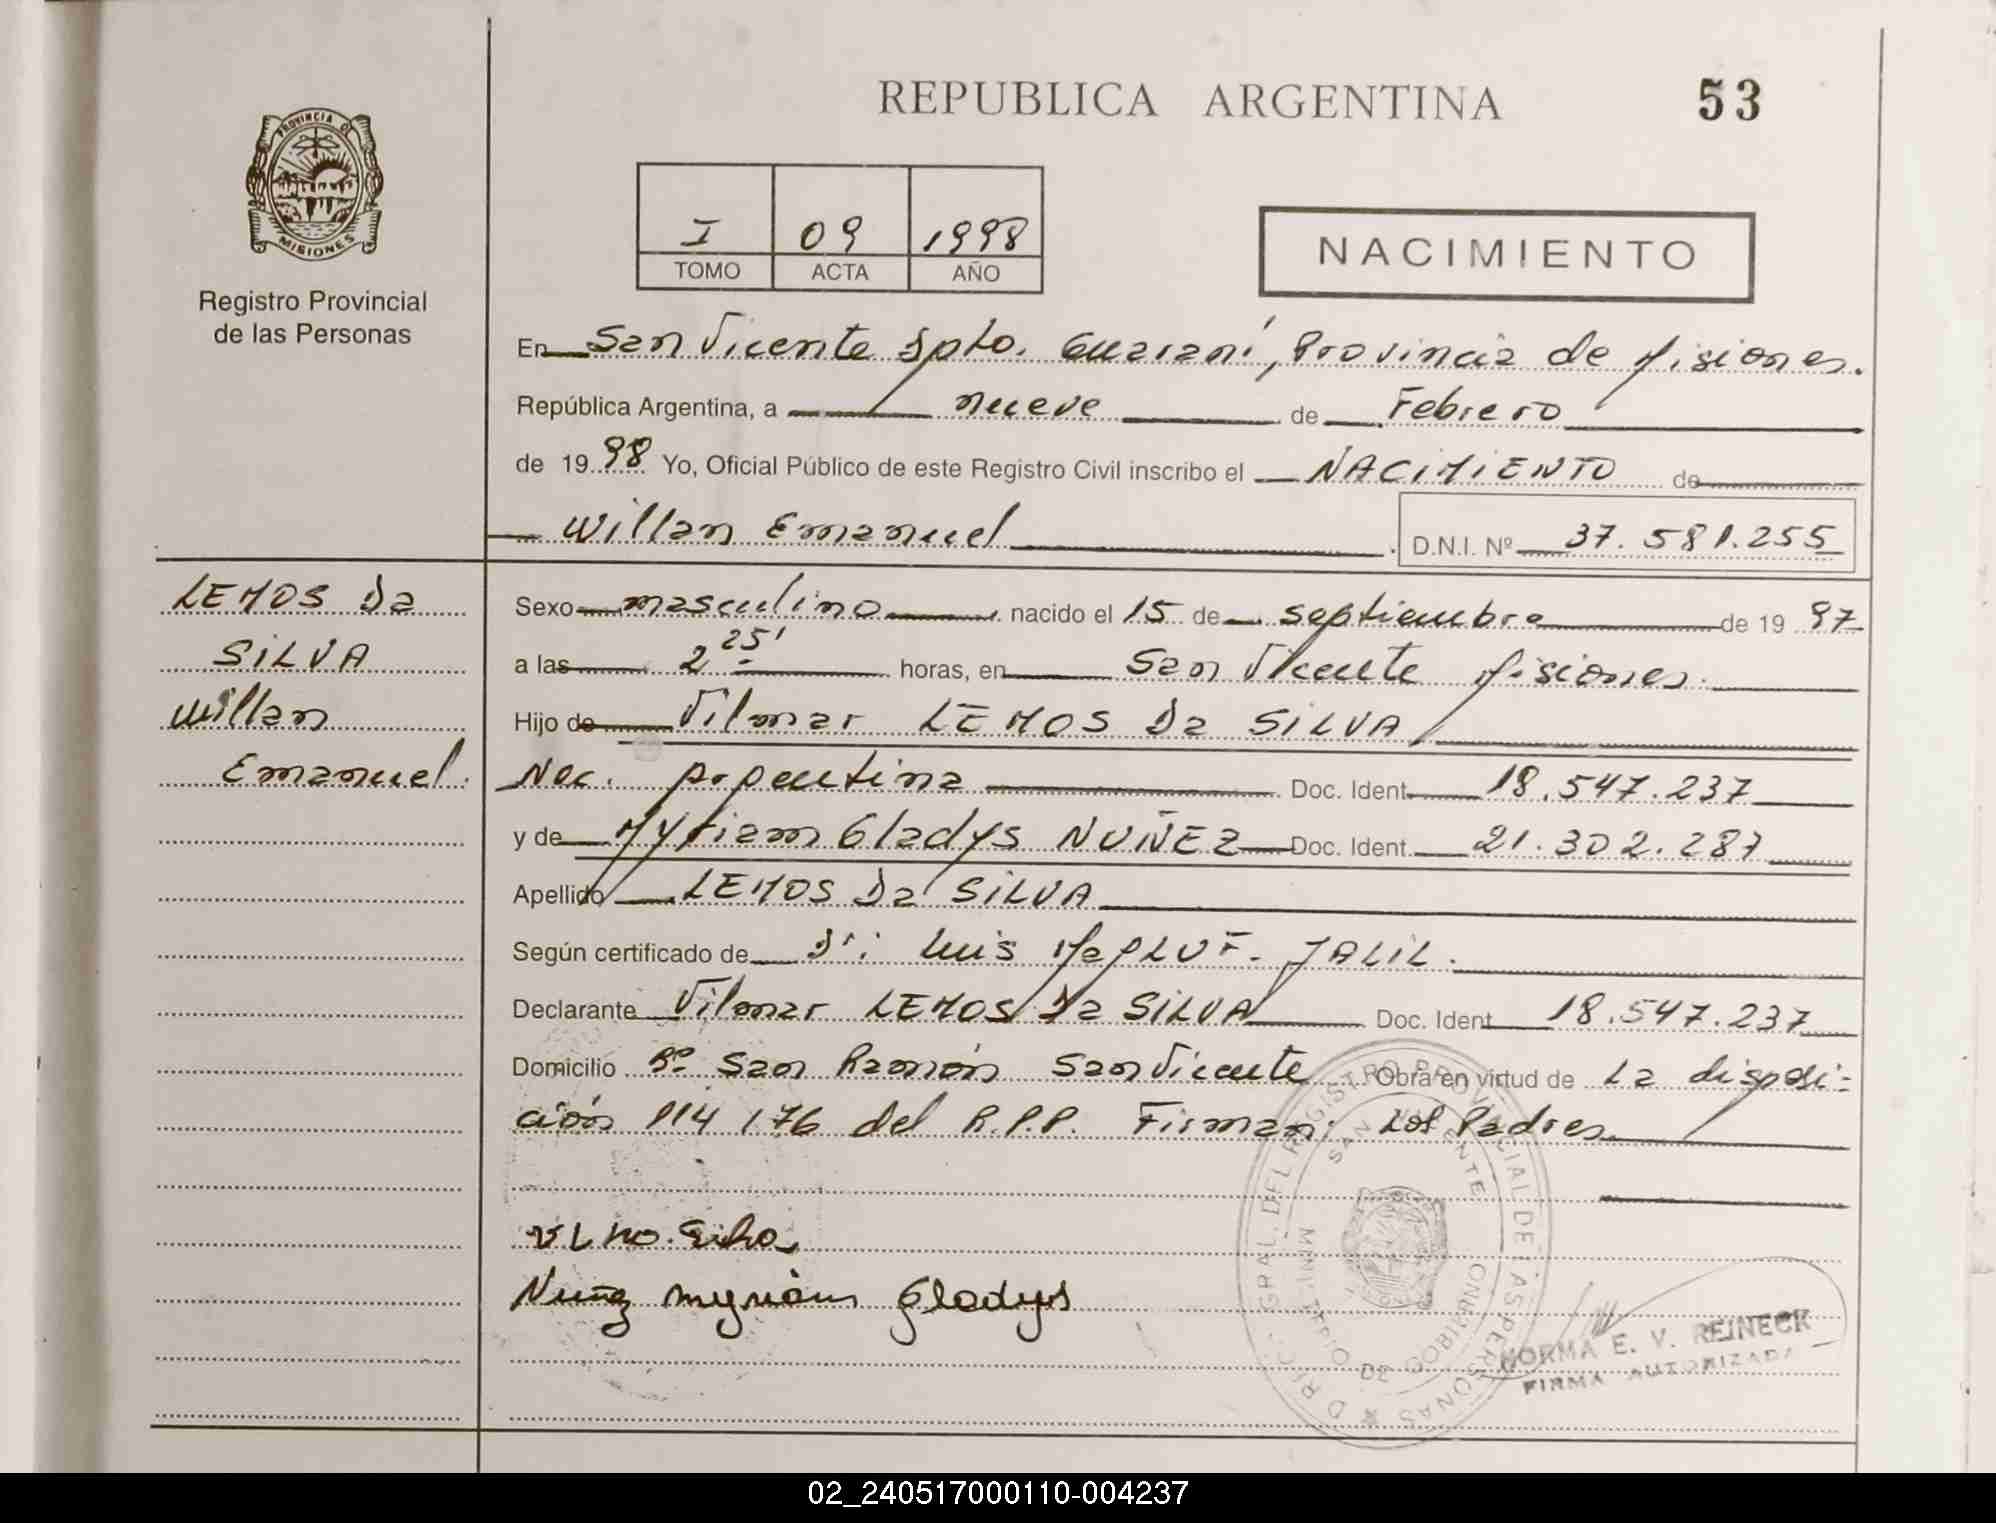 REPUBLICA ARGENTINA
53
PROVINCIA DE
MISIONES
Registro Provincial
de las Personas
I 09 1998
TOMO ACTA AÑO
NACIMIENTO
En San Vicente Dpto. Guaraní, Provincia de Misiones.
República Argentina, a nueve de Febrero
de 1998 Yo, Oficial Público de este Registro Civil inscribo el NACIMIENTO de
Willan Emanuel D.N.I. Nº 37.581.255
LEMOS Da
SILVA
Willan
Emanuel.
Sexo masculino nacido el 15 de septiembre de 1997
a las 2 25' horas, en San Vicente Misiones.
Hijo de Vilmar LEMOS Da SILVA
Nac. Argentina Doc. Ident. 18.547.237
y de Myriam Gladys NUÑEZ Doc. Ident. 21.302.287
Apellido LEMOS Da SILVA
Según certificado de Dr: Luis MaPLUF. JALIL.
Declarante Vilmar LEMOS Da SILVA Doc. Ident. 18.547.237
Domicilio Bº San Ramón San Vicente Obra en virtud de La disposi=
ción 114/76 del R.P.P. Firman: Los Padres.
Nuñez myriam Gladys
GRAL. DEL REGISTRO PROVINCIAL DE LAS PERSONAS
SAN VICENTE
MINISTERIO DE GOBIERNO
NORMA E. V. REINECK
FIRMA AUTORIZADA
02_240517000110-004237